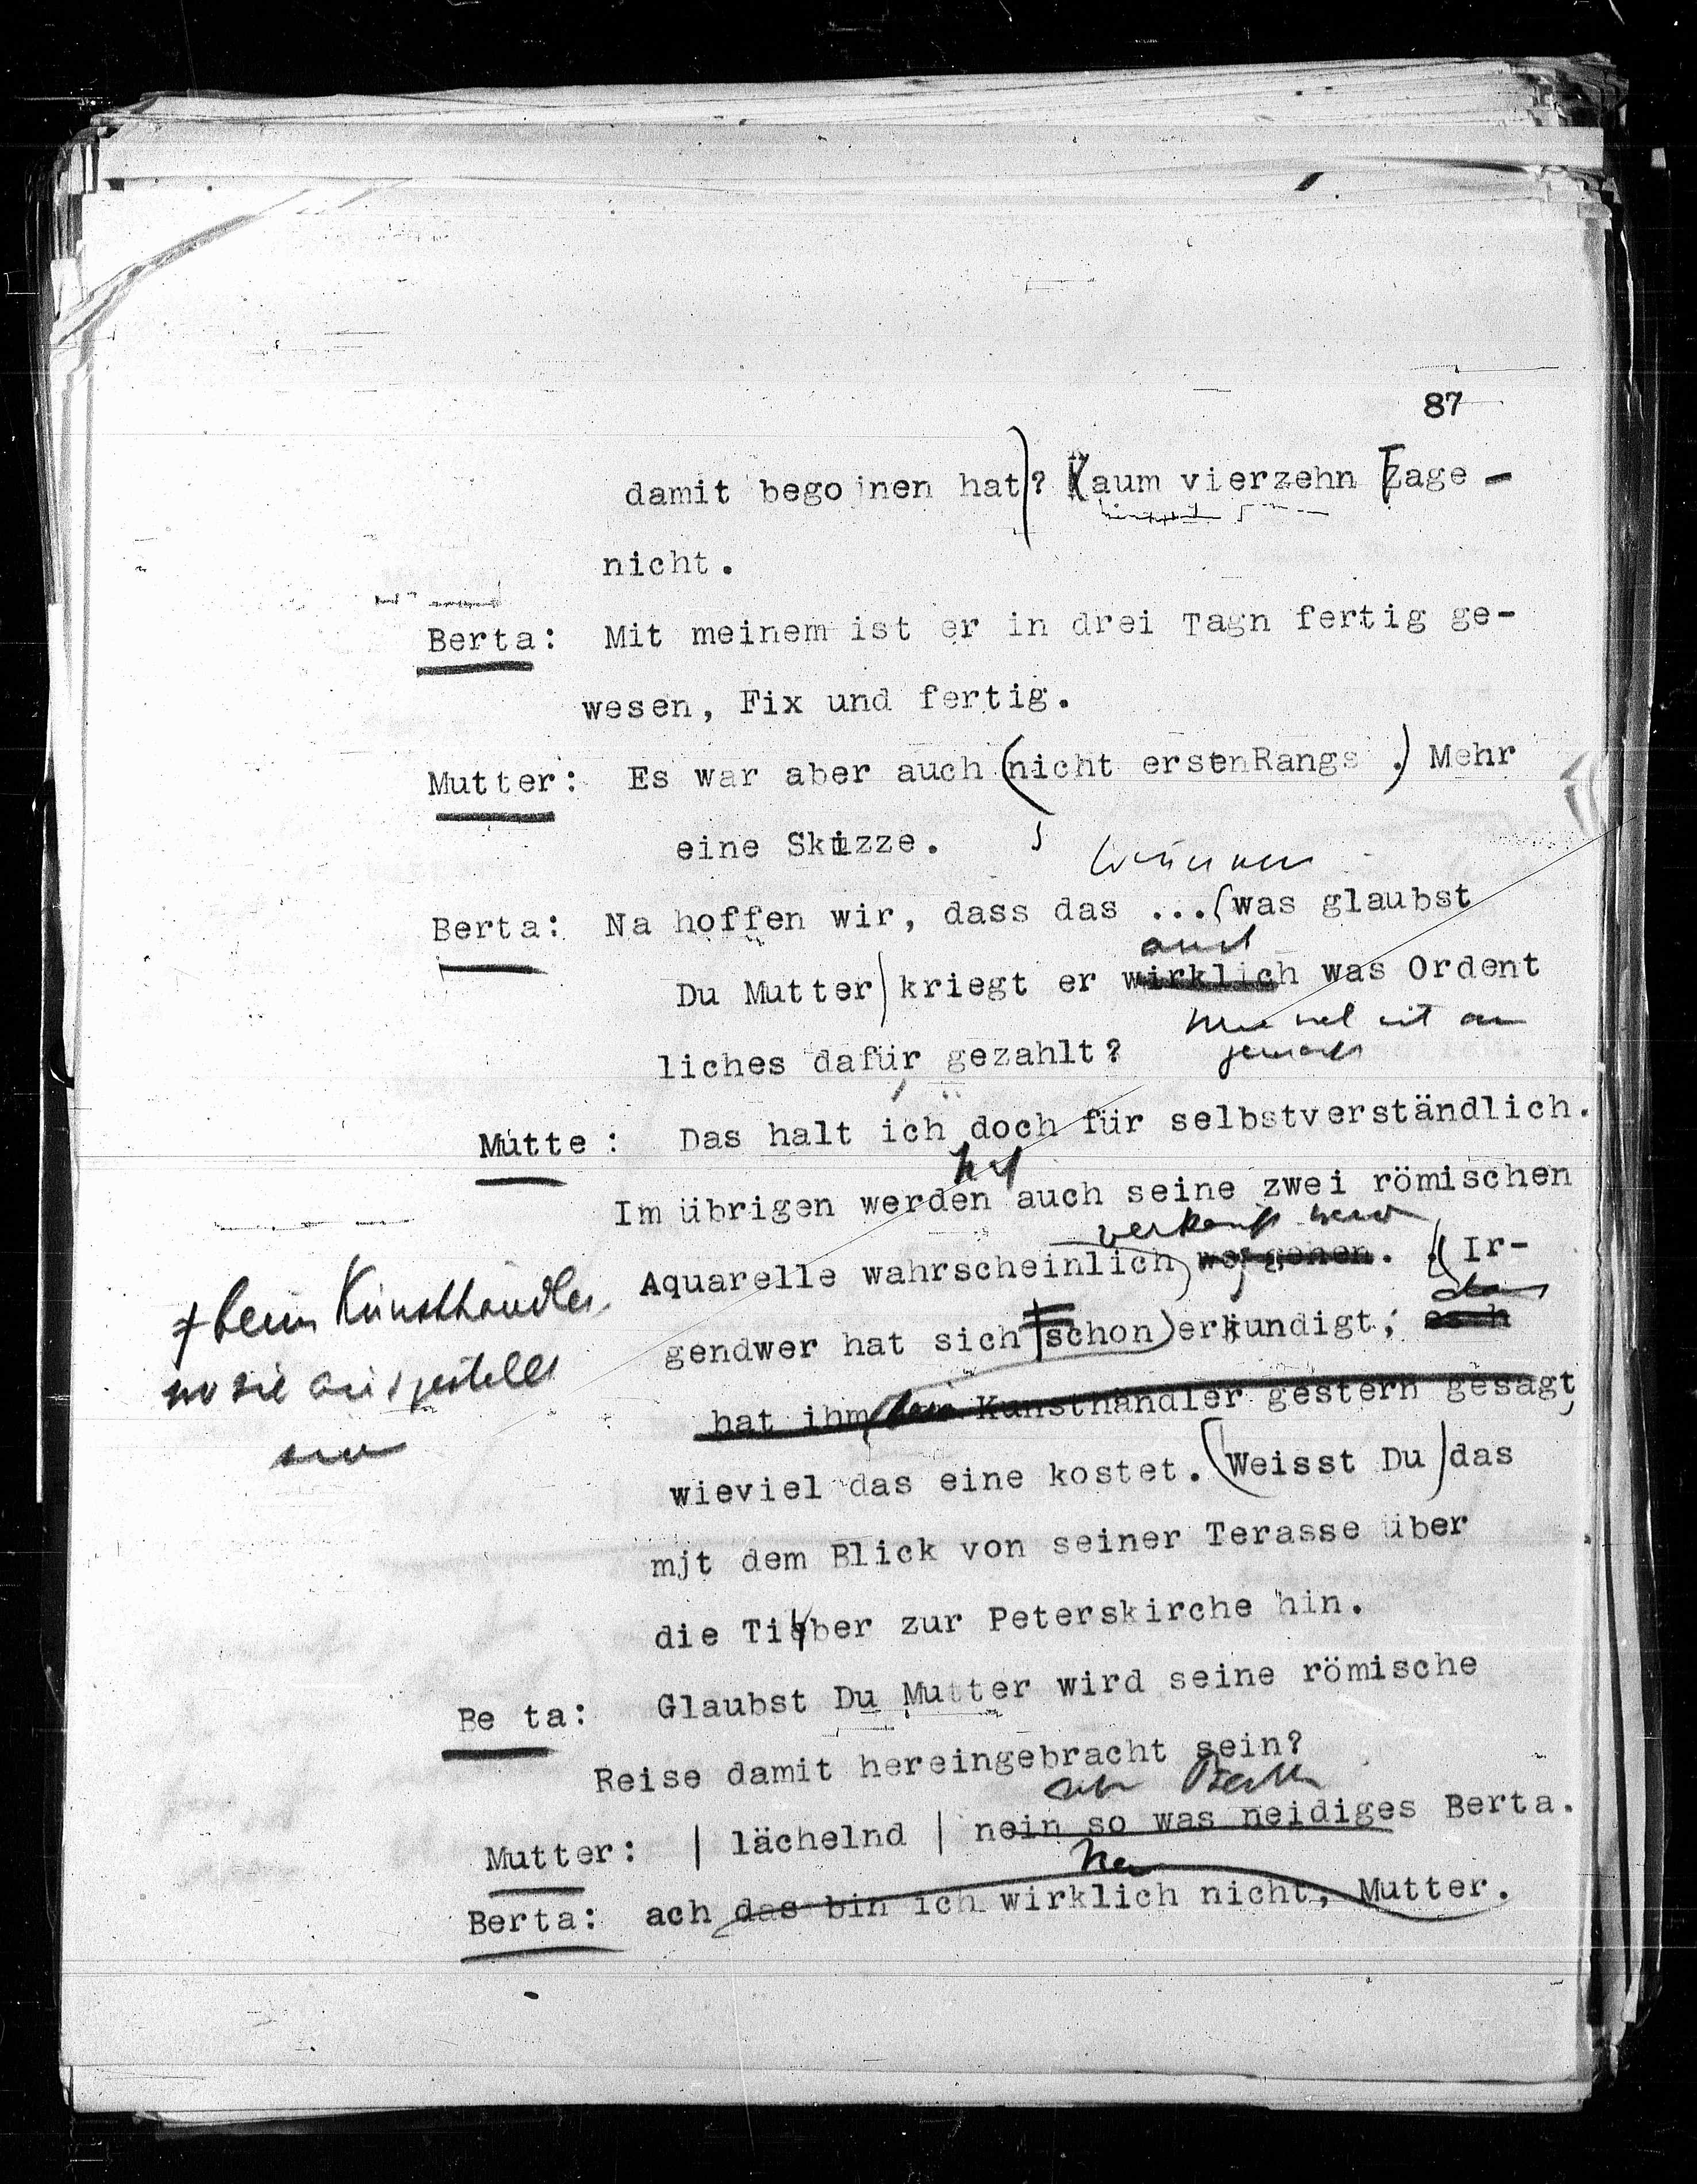 87
damit begonnen hat)? Kaum vierzehn Tage -
nicht.
Berta: Mit meinem ist er in drei Tagn fertig ge-
wesen, Fix und fertig.
Mutter: Es war aber auch (nicht erstenRangs .) Mehr
eine Skizze.
Berta: Na hoffen wir, dass das ...(was glaubst
auch
Du Mutter) kriegt er wirklich was Ordent
liches dafür gezahlt?
Mutte : Das halt ich doch für selbstverständlich.
Im übrigen werden auch seine zwei römischen
verkauft
Aquarelle wahrscheinlich weggehen. (Ir-
gendwer hat sich (schon) erkundigt;
+ beim Kunsthändler,
wo sie ausgestellt
sind
hat ihm Kunsthändler gestern gesagt,
wieviel das eine kostet. (Weisst Du) das
mjt dem Blick von seiner Terasse über
die Tiber zur Peterskirche hin.
Be ta: Glaubst Du Mutter wird seine römische
Reise damit hereingebracht sein?
aber Berta
Mutter: | lächelnd | nein so was neidiges Berta.
Berta: ach das bin ich wirklich nicht, Mutter.